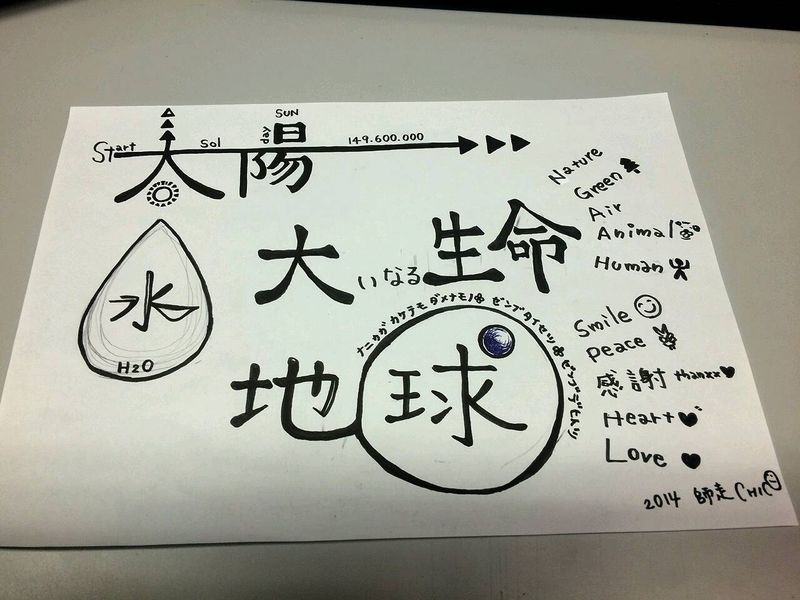 SUN
Start Sol day 149.600.000
太陽
水
H2O
大いなる生命
地球
ナニカガカケテモダメナモノ ゼンブタイセツ ゼンブデヒトツ
Nature
Green
Air
Animal
Human
Smile
peace
感謝 thanxx
Heart
Love
2014 師走 CHIC